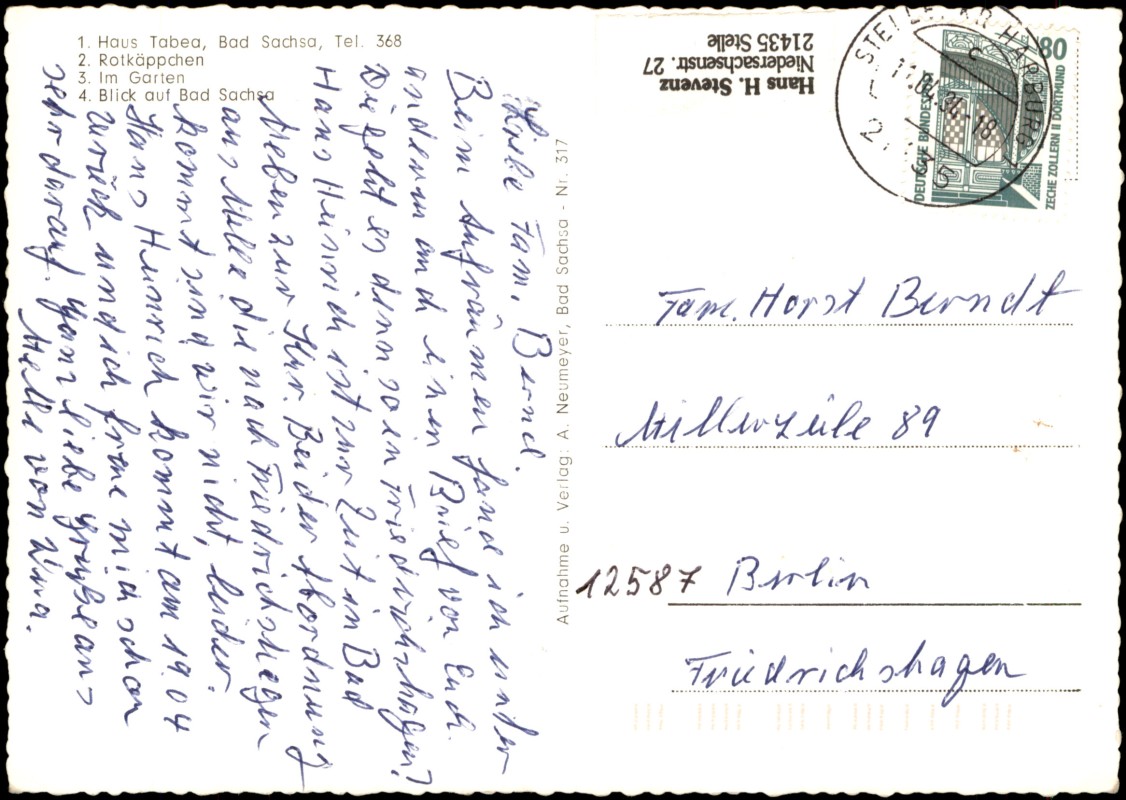 1. Haus Tabea, Bad Sachsa, Tel. 368
2. Rotkäppchen
3. Im Garten
4. Blick auf Bad Sachsa
Liebe Fam. Bernd.
Beim Aufräumen fand ich unter
anderem auch einen Brief von Euch.
Wie geht es denn so in Friedrichshagen?
Hans Heinrich ist zur Zeit in Bad
zur Kur. Bei der Abordnung
aus Stelle die nach Friedrichshagen
kommt sind wir nicht, leider.
Hans Heinrich kommt am 19.04
zurück und ich freue mich schon
sehr darauf. Ganz liebe Grüße aus
Stelle von
Aufnahme u. Verlag: A. Neumeyer, Bad Sachsa - Nr. 317
Hans H. Stevenz
Niedersachsenstr. 27
21435 Stelle
STELLE, KR HARBURG
c
-18
2
80
DEUTSCHE BUNDESPOST
ZECHE ZOLLERN II DORTMUND
Fam. Horst Berndt
89
12587 Berlin
Friedrichshagen